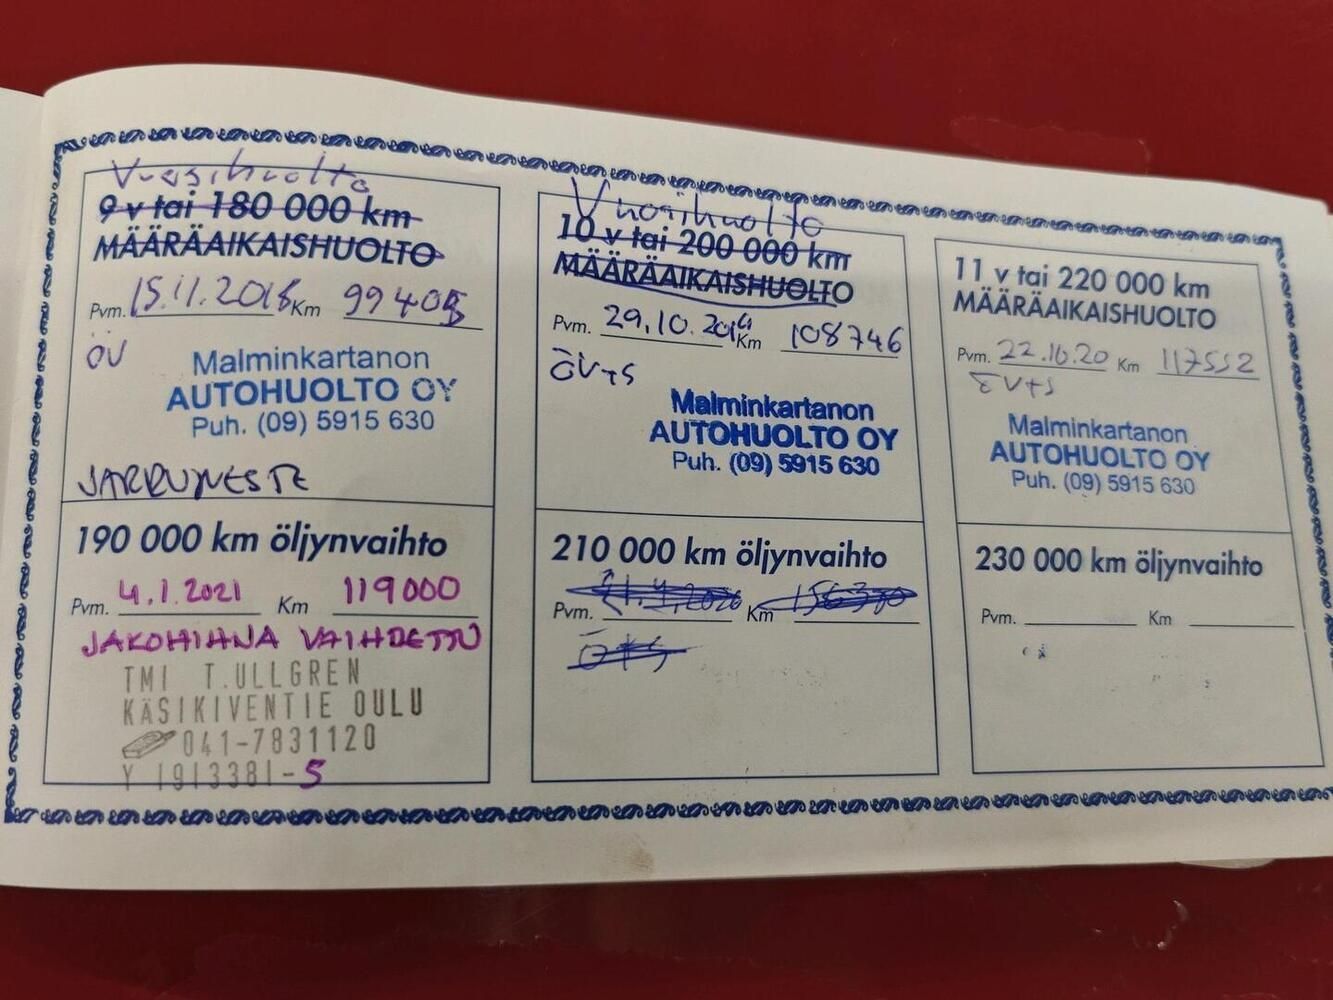 Vuosihuolto
9 v tai 180 000 km
MÄÄRÄAIKAISHUOLTO
Pvm. 15.11.2018 Km 99405
ÖV
Malminkartanon
AUTOHUOLTO OY
Puh. (09) 5915 630
JARRUNESTE
190 000 km öljynvaihto
Pvm. 4.1.2021 Km 119000
JAKOHIHNA VAIHDETTU
TMI T.ULLGREN
KÄSIKIVENTIE OULU
041-7831120
Y 1913381-5
Vuosihuolto
10 v tai 200 000 km
MÄÄRÄAIKAISHUOLTO
Pvm. 29.10. Km 108746
ÖV+S
Malminkartanon
AUTOHUOLTO OY
Puh. (09) 5915 630
210 000 km öljynvaihto
Pvm. Km
Ö+S
11 v tai 220 000 km
MÄÄRÄAIKAISHUOLTO
Pvm. 22.10.20 Km 117552
ÖV+S
Malminkartanon
AUTOHUOLTO OY
Puh. (09) 5915 630
230 000 km öljynvaihto
Pvm. Km